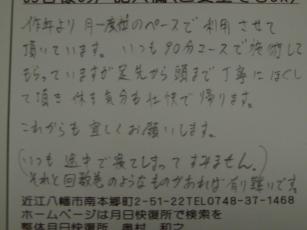 昨年より 月一度位のペースで利用させて
頂いています。いつも90分コースで施術して
もらっていますが足先から頭まで丁寧にほぐし
て頂き 体も気分も壮快で帰ります。
これからも宜しくお願いします。
(いつも途中で寝てしまってすみません。)
それと回数巻のようなものがあれば有り難いです
近江八幡市南本郷町2-51-22TEL0748-37-1468
ホームページは月日快復所で検索を
整体月日快復所 奥村 和之